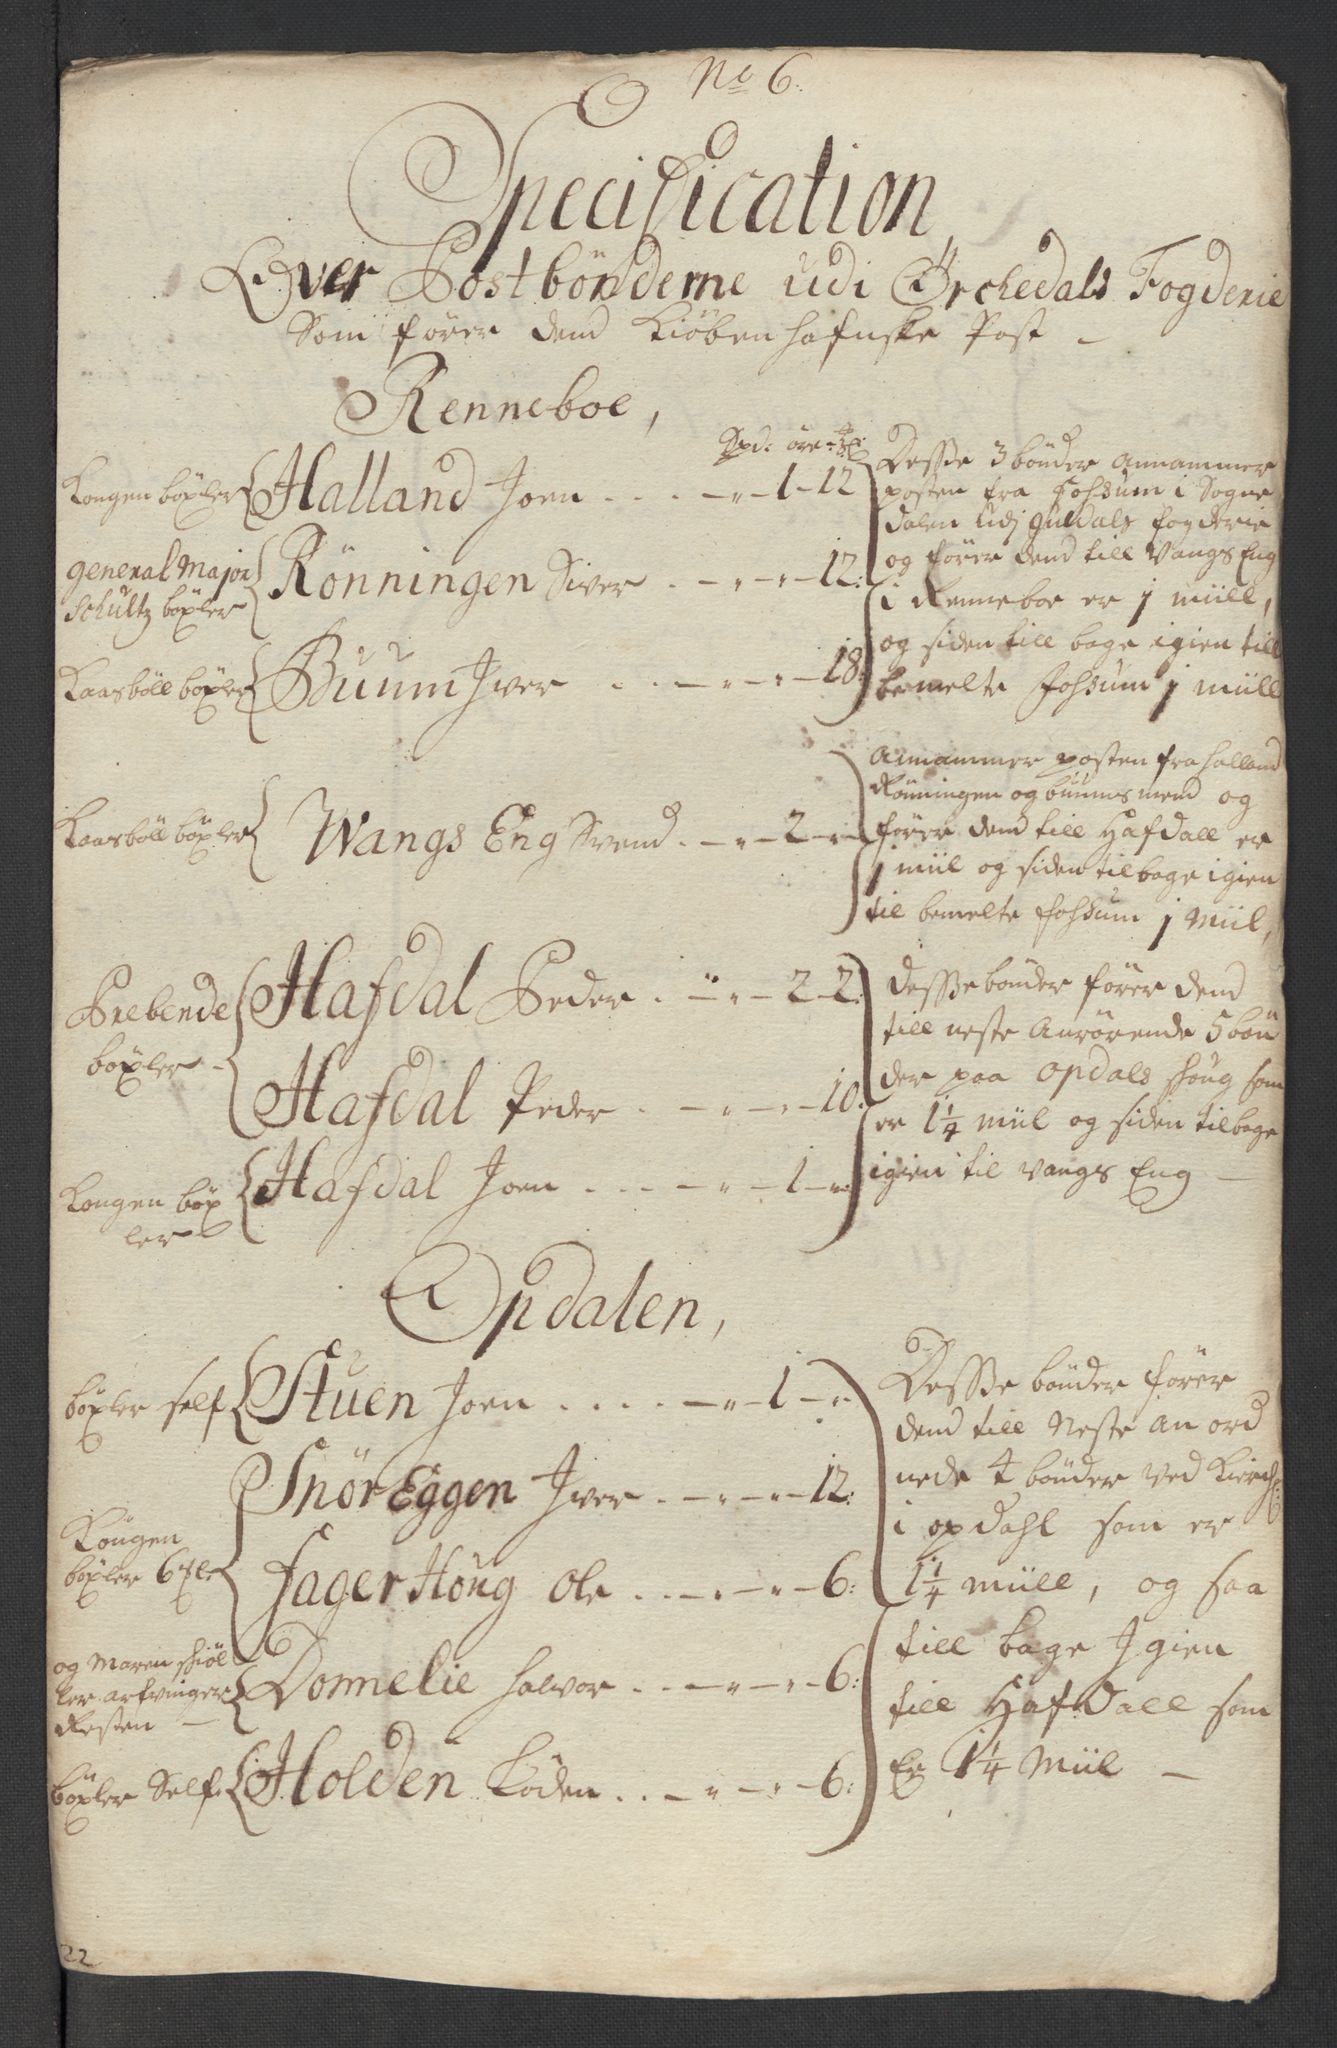 No 6.
Specification
Over Postbönderne udi Ørchedals Fogderie
Som förer dend Kiöbenhafnske Post -
Renneboe,
Spd: öre
Kongen böxler Halland Joen . . . . - " - 1 - 12
General Major Schultz böxler Rönningen Siver . - " - " - 12:
Kaasböll böxler Buum Iver . . . - " - " - 18:
Desse 3 bönder Annammer
posten fra Fossum i Sogne
dalen udj Guldals fogderie
og förer dend till Vangs Eng
i Renneboe er 1 miill,
og siden till bage igien till
bemelte Fossum 1 miill
Kaasböll böxler Wangs Eng Svend . - " - 2 - "
Annammer posten fra Halland
Rönningen og Buums mend og
förer dend till Hafdall er
1 miil og siden tilbage igien
til bemelte Fossum 1 Miil,
Prebende böxler - Hafdal Peder . - " - 2 - 2:
Hafdal Peder . - " - " - 10:
Kongen böx
ler Hafdal Joen . . . - " - 1 - "
Desse bönder förer dend
till neste Anrörende 5 bön
der paa Opdals skoug som
er 1 1/4 miil og siden tilbage
igien til Vangs Eng -
Opdalen,
böxler self Stuen Joen . . . . - " - 1 - "
Snör Eggen Iver . - " - " - 12:
Kongen
böxler 6
Jager Houg Ole . . - " - " - 6:
og Maren skiöl
ler arfvinger
Resten - Donnelie Halvor . . - " - " - 6:
böxler Self. Holden Loden . . - " - " - 6:
Desse bönder förer
dend till Neste an ord
nede 4 bönder ved Kirch:
i opdahl som er
1 1/4 miill, og saa
till bage Igien
till Hafdall som
Er 1 1/4 Miil -
22